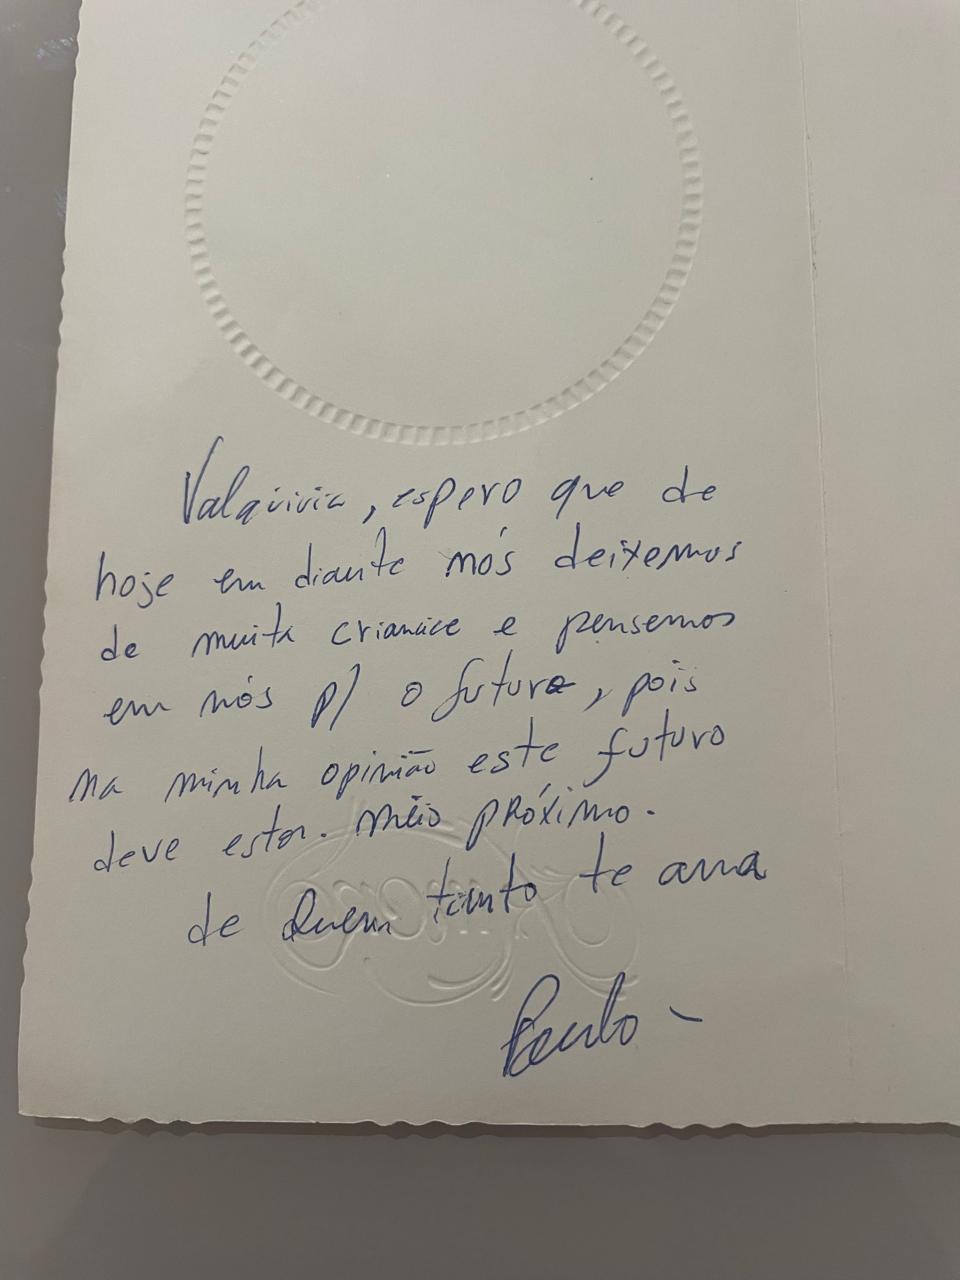 Valquivia, espero que de
hoje em diante nós deixemos
de muita criancice e pensemos
em nós p/ o futuro, pois
na minha opinião este futuro
deve estar. mũio próximo.
de Quem tanto te ama
Paulo -